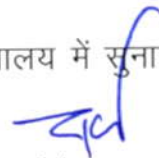 ालय में सुना